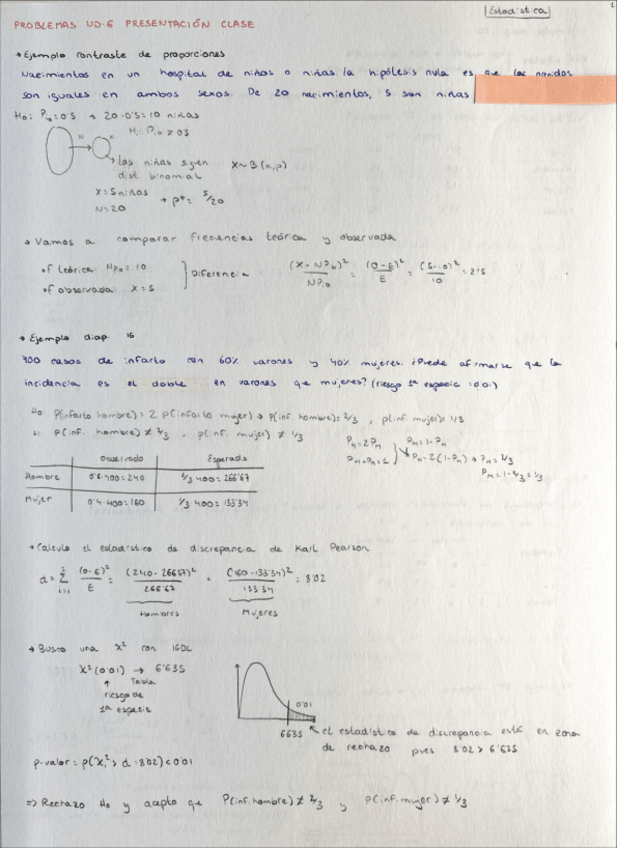 Estadística
1
PROBLEMAS UD.6 PRESENTACIÓN CLASE
→ Ejemplo contraste de proporciones
Nacimientos en un hospital de niños o niñas la hipótesis nula es que los nacidos
son iguales en ambos sexos. De 20 nacimientos, 5 son niñas
H0: P10 = 0'5 → 20·0'5 = 10 niñas
H1: P10 ≠ 0'5
N x
→ las niñas siguen
dist. binomial
X~B(n,p)
X = 5 niñas
N = 20
→ p* = 5/20
→ Vamos a comparar frecuencias teórica y observada
·f teórica: Np10 = 10
·f observada: x = 5
} Diferencia
(X-NP10)²/NP10 = (O-E)²/E = (5-10)²/10 = 2'5
→ Ejemplo diap. 16
400 casos de infarto con 60% varones y 40% mujeres. ¿Puede afirmarse que la
incidencia es el doble en varones que mujeres? (riesgo 1ª especie = 0'01)
H0 P(infarto hombre) = 2 p(infarto mujer) → P(inf. hombre) = 2/3, p(inf. mujer) = 1/3
H1 P(inf. hombre) ≠ 2/3, p(inf. mujer) ≠ 1/3
PH = 2PM
PH + PM = 1
PM = 1-PH
PH = 2(1-PH) → PH = 2/3
PM = 1-2/3 = 1/3
Observado Esperado
Hombre 0'6·400 = 240 2/3·400 = 266'67
Mujer 0'4·400 = 160 1/3·400 = 133'34
→ Calculo el estadístico de discrepancia de Karl Pearson
d = Σ (O-E)²/E = (240-266'67)²/266'67 + (160-133'34)²/133'34 = 8'02
Hombres Mujeres
→ Busco una X² con 1GDL
X²(0'01) → 6'635
↑ Tabla
riesgo de
1ª especie
0'01
6'635
el estadístico de discrepancia está en zona
de rechazo pues 8'02 > 6'635
p-valor = p(X1² > d = 8'02) < 0'01
⇒ Rechazo H0 y acepto que P(inf. hombre) ≠ 2/3 y P(inf. mujer) ≠ 1/3